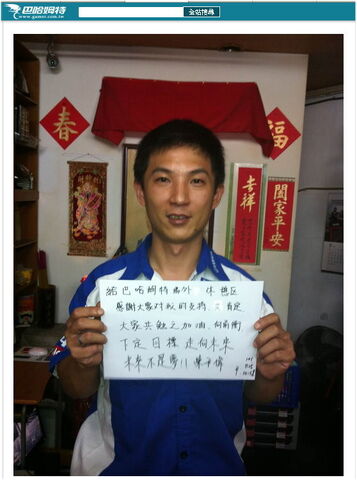 巴哈姆特
www.gamer.com.tw
全站搜尋
春
福
吉祥
闔家平安
給巴哈姆特場外 休憩區
感謝大家對我的支持 肯定
大家共勉之加油 向前衝
下定目標 走向未來
未來不是夢